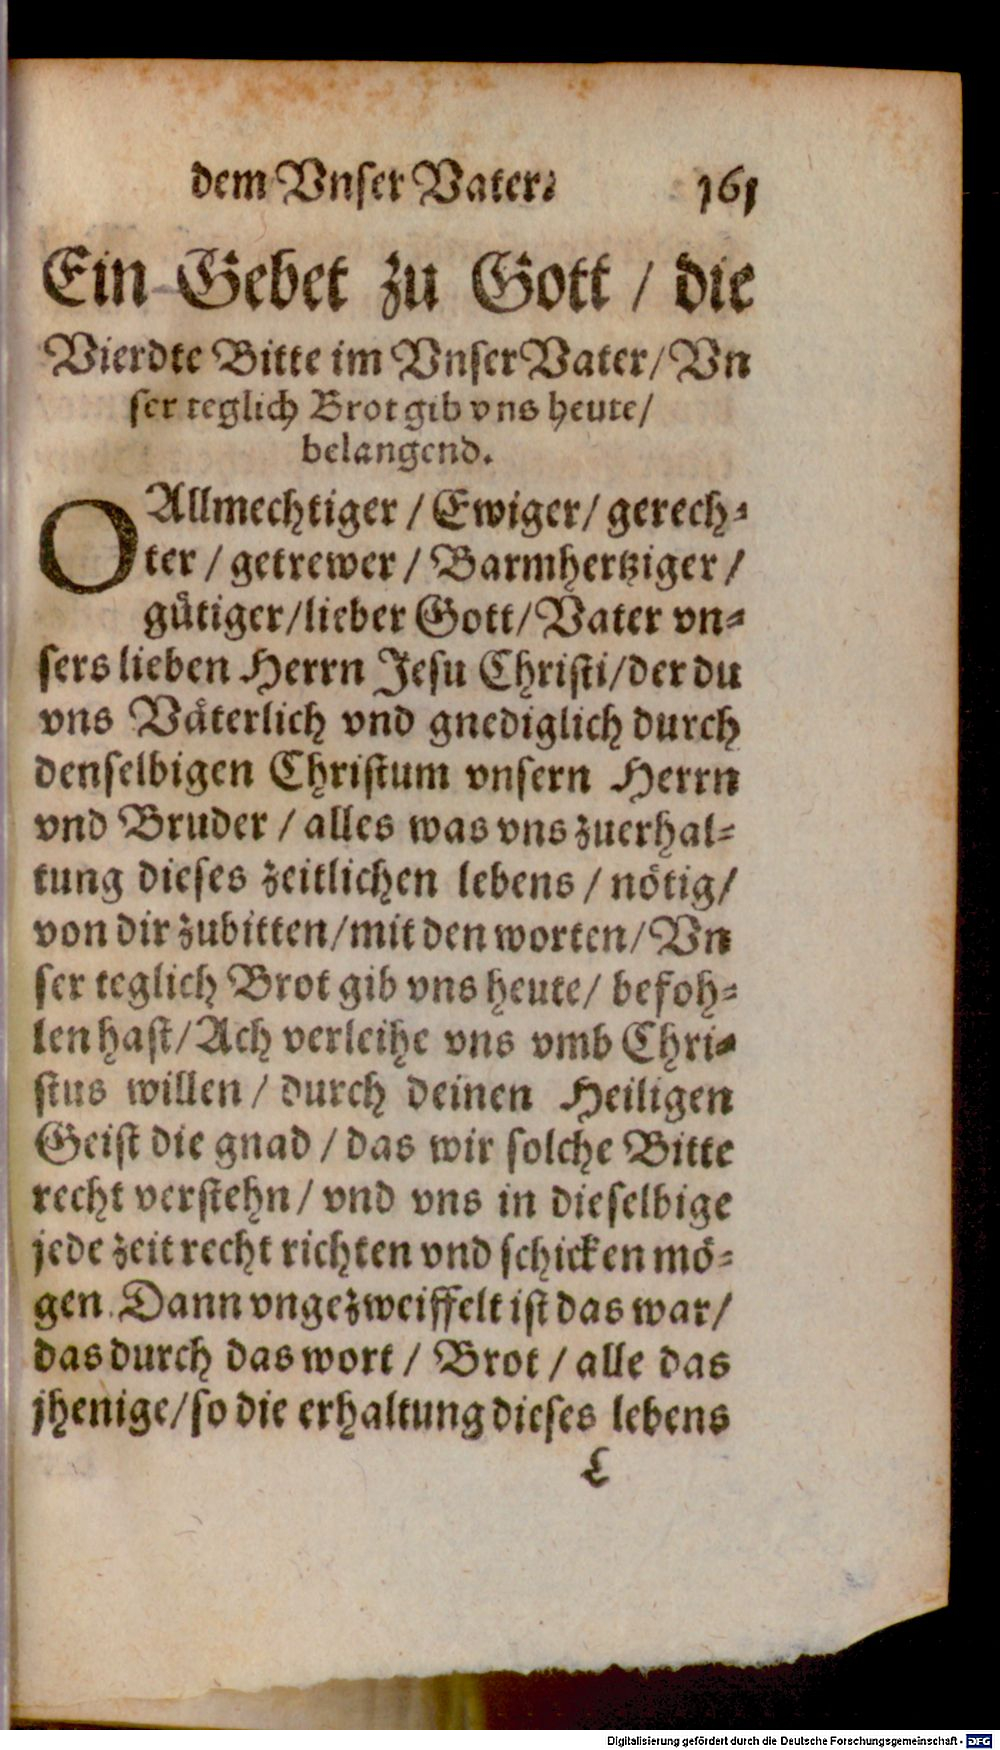 dem Vnser Vater. 161
Ein Gebet zu Gott / die
Vierdte Bitte im Vnser Vater / Vn
ser teglich Brot gib vns heute /
belangend.
O Allmechtiger / Ewiger / gerech-
ter / getrewer / Barmhertziger /
gütiger / lieber Gott / Vater vn-
sers lieben Herrn Jesu Christi / der du
vns Väterlich vnd gnediglich durch
denselbigen Christum vnsern Herrn
vnd Bruder / alles was vns zuerhal-
tung dieses zeitlichen lebens / nötig /
von dir zubitten / mit den worten / Vn
ser teglich Brot gib vns heute / befoh-
len hast / Ach verleihe vns vmb Chri-
stus willen / durch deinen Heiligen
Geist die gnad / das wir solche Bitte
recht verstehn / vnd vns in dieselbige
jede zeit recht richten vnd schicken mö-
gen. Dann vngezweiffelt ist das war /
das durch das wort / Brot / alle das
jhenige / so die erhaltung dieses lebens
L
Digitalisierung gefördert durch die Deutsche Forschungsgemeinschaft - DFG